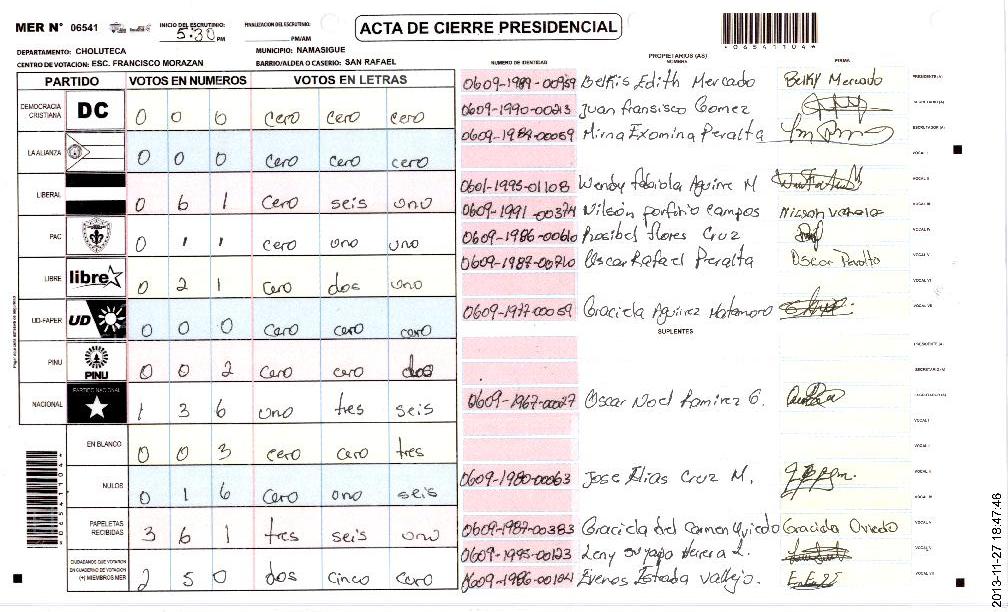 MER N° 06541 INICIO DEL ESCRUTINIO: 5:30 PM FINALIZACION DEL ESCRUTINIO: PM/AM
ACTA DE CIERRE PRESIDENCIAL
06541104
DEPARTAMENTO: CHOLUTECA MUNICIPIO: NAMASIGUE
CENTRO DE VOTACION: ESC. FRANCISCO MORAZAN BARRIO/ALDEA O CASERIO: SAN RAFAEL
PARTIDO VOTOS EN NUMEROS VOTOS EN LETRAS
DEMOCRACIA CRISTIANA DC 0 0 0 cero cero cero
LA ALIANZA 0 0 0 cero cero cero
LIBERAL 0 6 1 cero seis uno
PAC 0 1 1 cero uno uno
LIBRE libre 0 2 1 cero dos uno
UD-FAPER UD 0 0 0 cero cero cero
PINU PINU 0 0 2 cero cero dos
NACIONAL PARTIDO NACIONAL 1 3 6 uno tres seis
EN BLANCO 0 0 3 cero cero tres
NULOS 0 1 6 cero uno seis
PAPELETAS RECIBIDAS 3 6 1 tres seis uno
CIUDADANOS QUE VOTARON EN CUADERNO DE VOTACION (+) MIEMBROS MER 2 5 0 dos cinco cero
06541104
PROPIETARIOS (AS)
NUMERO DE IDENTIDAD NOMBRE FIRMA
0609-1989-00959 Belkis Edith Mercado Belky Mercado PRESIDENTE(A)
0609-1990-00213 Juan fransisco Gomez SECRETARIO(A)
0609-1989-00059 Mirna Exomina Peralta ESCRUTADOR(A)
VOCAL I
0601-1993-01108 Wendy fabiola Aguirre M VOCAL II
0609-1991-00374 Nilson porfirio campos VOCAL III
0609-1986-00610 Rosibel flores Cruz VOCAL IV
0609-1987-00710 Oscar Rafael Peralta Oscar Peralta VOCAL V
VOCAL VI
0609-1977-00059 Graciela Aguirez Matamoro VOCAL VII
SUPLENTES
PRESIDENTE(A)
SECRETARIO(A)
0609-1967-00027 Oscar Noel Ramirez G. ESCRUTADOR(A)
VOCAL I
VOCAL I
0609-1980-00063 Jose Elias Cruz M. VOCAL II
VOCAL IV
0609-1987-00383 Graciela del carmen Oviedo Graciela Oviedo VOCAL V
0609-1993-00123 Leny suyapa Herrera L. VOCAL
0609-1986-00104 Evenos Estrada Vallejo. VOCAL VII
2013-11-27 18:47:46